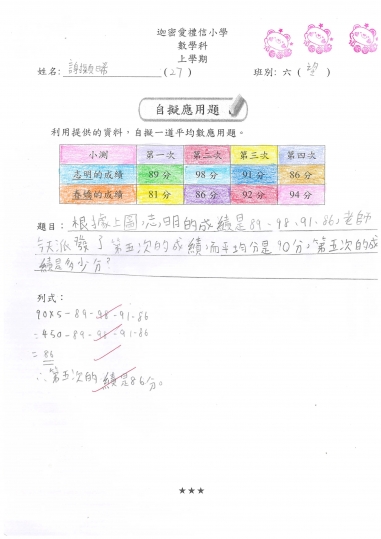 迦密愛禮信小學
數學科
上學期
姓名: 謝穎晞 (27) 班別: 六 (望)
自擬應用題
利用提供的資料,自擬一道平均數應用題。
小測 第一次 第二次 第三次 第四次
志明的成績 89分 98分 91分 86分
春嬌的成績 81分 86分 92分 94分
題目: 根據上圖,志明的成績是89、98、91、86,老師
今天派發了第五次的成績,而平均分是90分,第五次的成
績是多少分?
列式:
90×5-89-98-91-86
=450-89-98-91-86
=86
∴第五次的績是86分。
★★★